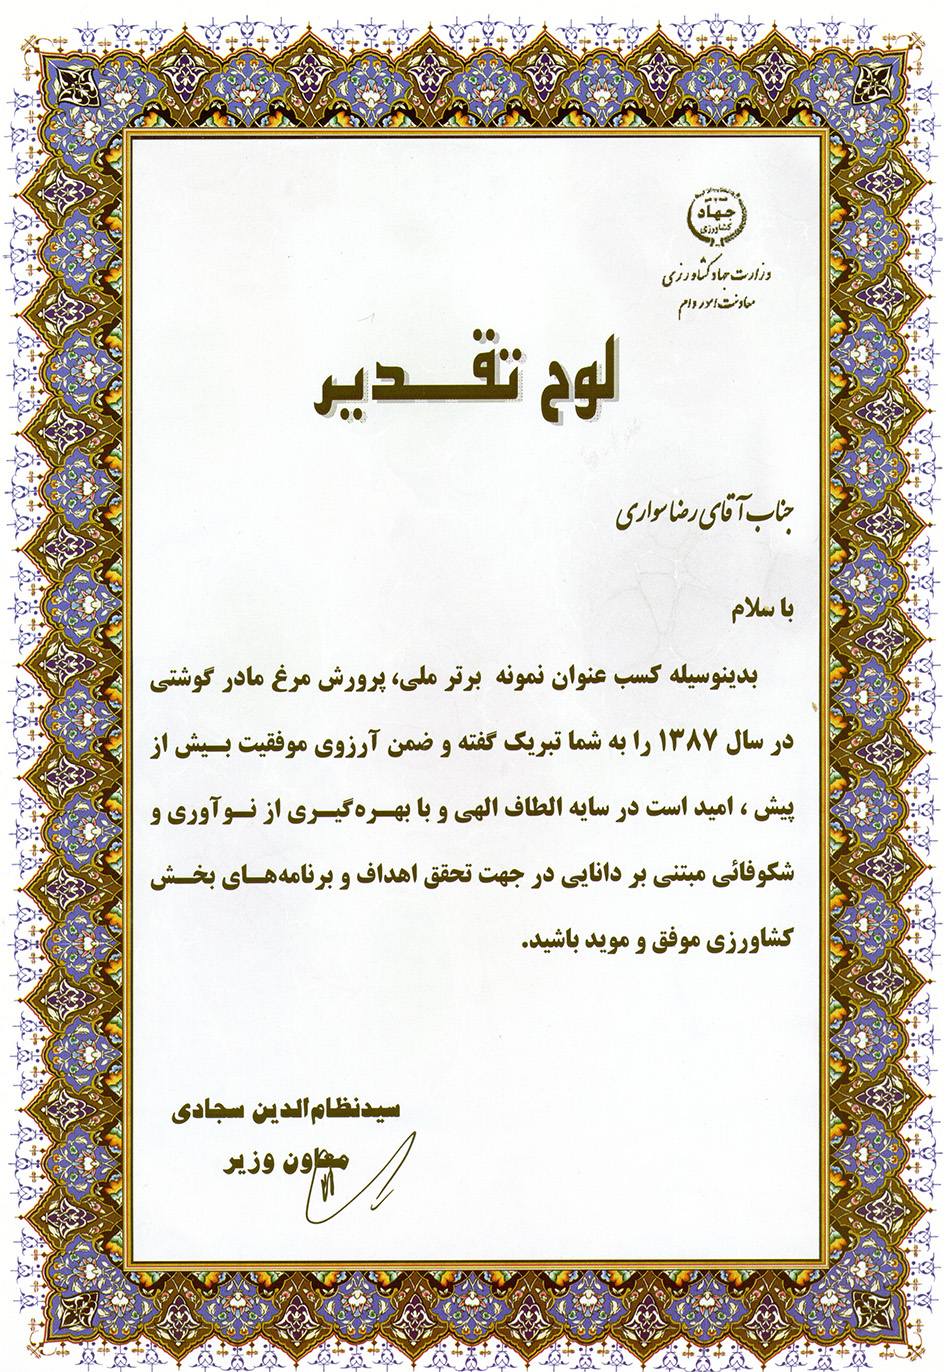 جهاد
کشاورزی
وزارت جهاد کشاورزی
معاونت امور دام
لوح تقدیر
جناب آقای رضا سواری
با سلام
بدینوسیله کسب عنوان نمونه برتر ملی، پرورش مرغ مادر گوشتی
در سال ۱۳۸۷ را به شما تبریک گفته و ضمن آرزوی موفقیت بیش از
پیش ، امید است در سایه الطاف الهی و با بهره‌گیری از نوآوری و
شکوفائی مبتنی بر دانایی در جهت تحقق اهداف و برنامه‌های بخش
کشاورزی موفق و موید باشید.
سیدنظام‌الدین سجادی
معاون وزیر